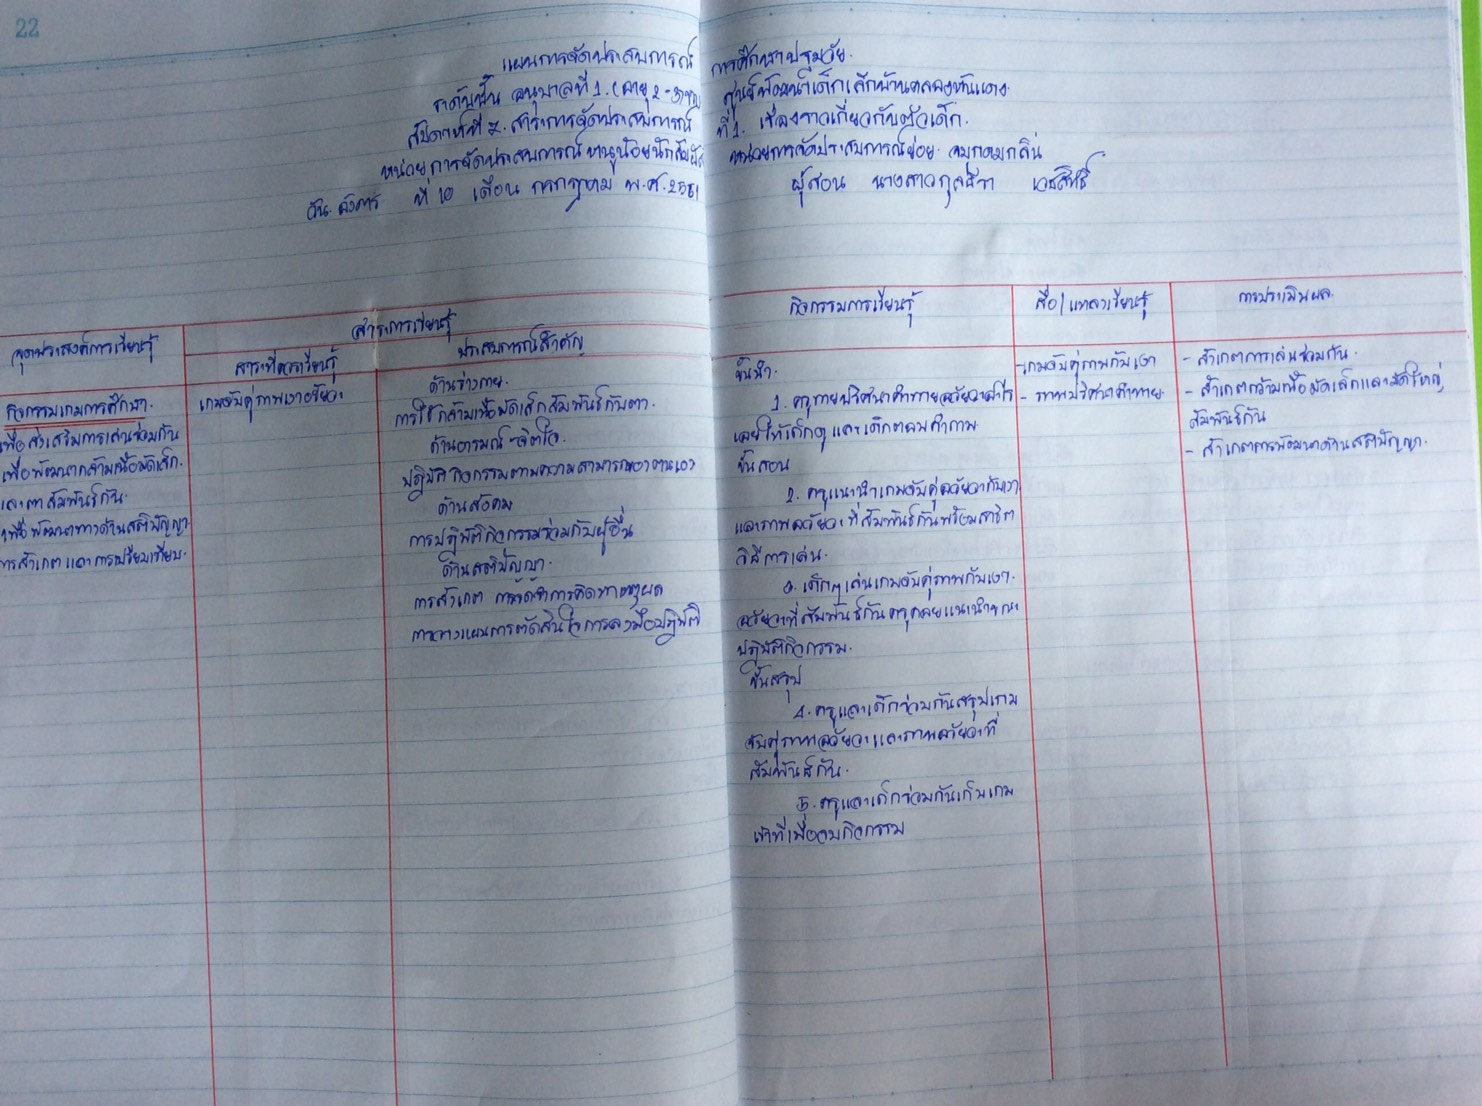 22
แผนการจัดประสบการณ์ การศึกษาปฐมวัย
ระดับชั้น อนุบาลที่ 1. (อายุ 2-3 ขวบ) ศูนย์พัฒนาเด็กเล็กบ้านคลองหินแดง
สัปดาห์ที่ 7. สาระการจัดประสบการณ์ ที่ 1. เรื่องราวเกี่ยวกับตัวเด็ก.
หน่วยการจัดประสบการณ์ หนูน้อยนักสัมผัส หน่วยการจัดประสบการณ์ย่อย. จมูกดมกลิ่น
วัน อังคาร ที่ 10 เดือน กรกฎาคม พ.ศ. 2561 ผู้สอน นางสาวกุลธิรา เวชสิทธิ์
จุดประสงค์การเรียนรู้
สาระการเรียนรู้
สาระที่ควรเรียนรู้
ประสบการณ์สำคัญ
กิจกรรมการเรียนรู้
สื่อ/แหล่งเรียนรู้
การประเมินผล
กิจกรรมเกมการศึกษา.
เพื่อส่งเสริมการเล่นร่วมกัน
เพื่อพัฒนากล้ามเนื้อมัดเล็ก.
และตาสัมพันธ์กัน.
เพื่อพัฒนาทางด้านสติปัญญา
การสังเกต และการเปรียบเทียบ.
เกมจับคู่ภาพเงาอวัยวะ
ด้านร่างกาย.
การใช้กล้ามเนื้อมัดเล็กสัมพันธ์กับตา.
ด้านอารมณ์-จิตใจ.
ปฏิบัติกิจกรรมตามความสามารถของตนเอง
ด้านสังคม
การปฏิบัติกิจกรรมร่วมกับผู้อื่น
ด้านสติปัญญา.
การสังเกต การคิด
การวางแผนการตัดสินใจการลงมือปฏิบัติ
ขั้นนำ.
1. ครูทายปริศนาคำทายอวัยวะอะไร
เอ่ยให้เด็กดูและเด็กตอบคำถาม
ขั้นสอน
2. ครูแนะนำเกมจับคู่อวัยวะกับเงา
และภาพอวัยวะที่สัมพันธ์กันพร้อมสาธิต
วิธีการเล่น.
3. เด็กๆเล่นเกมจับคู่ภาพกับเงา.
อวัยวะที่สัมพันธ์กันครูคอยแนะนำขณะ
ปฏิบัติกิจกรรม.
ขั้นสรุป
4. ครูและเด็กร่วมกันสรุปเกม
จับคู่ภาพอวัยวะและภาพอวัยวะที่
สัมพันธ์กัน.
5. ครูและเด็กร่วมกันเก็บเกม
เข้าที่เมื่อจบกิจกรรม
- เกมจับคู่ภาพกับเงา
- ภาพปริศนาคำทาย.
- สังเกตการเล่นร่วมกัน.
- สังเกตกล้ามเนื้อมัดเล็กและมัดใหญ่
สัมพันธ์กัน
- สังเกตการพัฒนาด้านสติปัญญา.